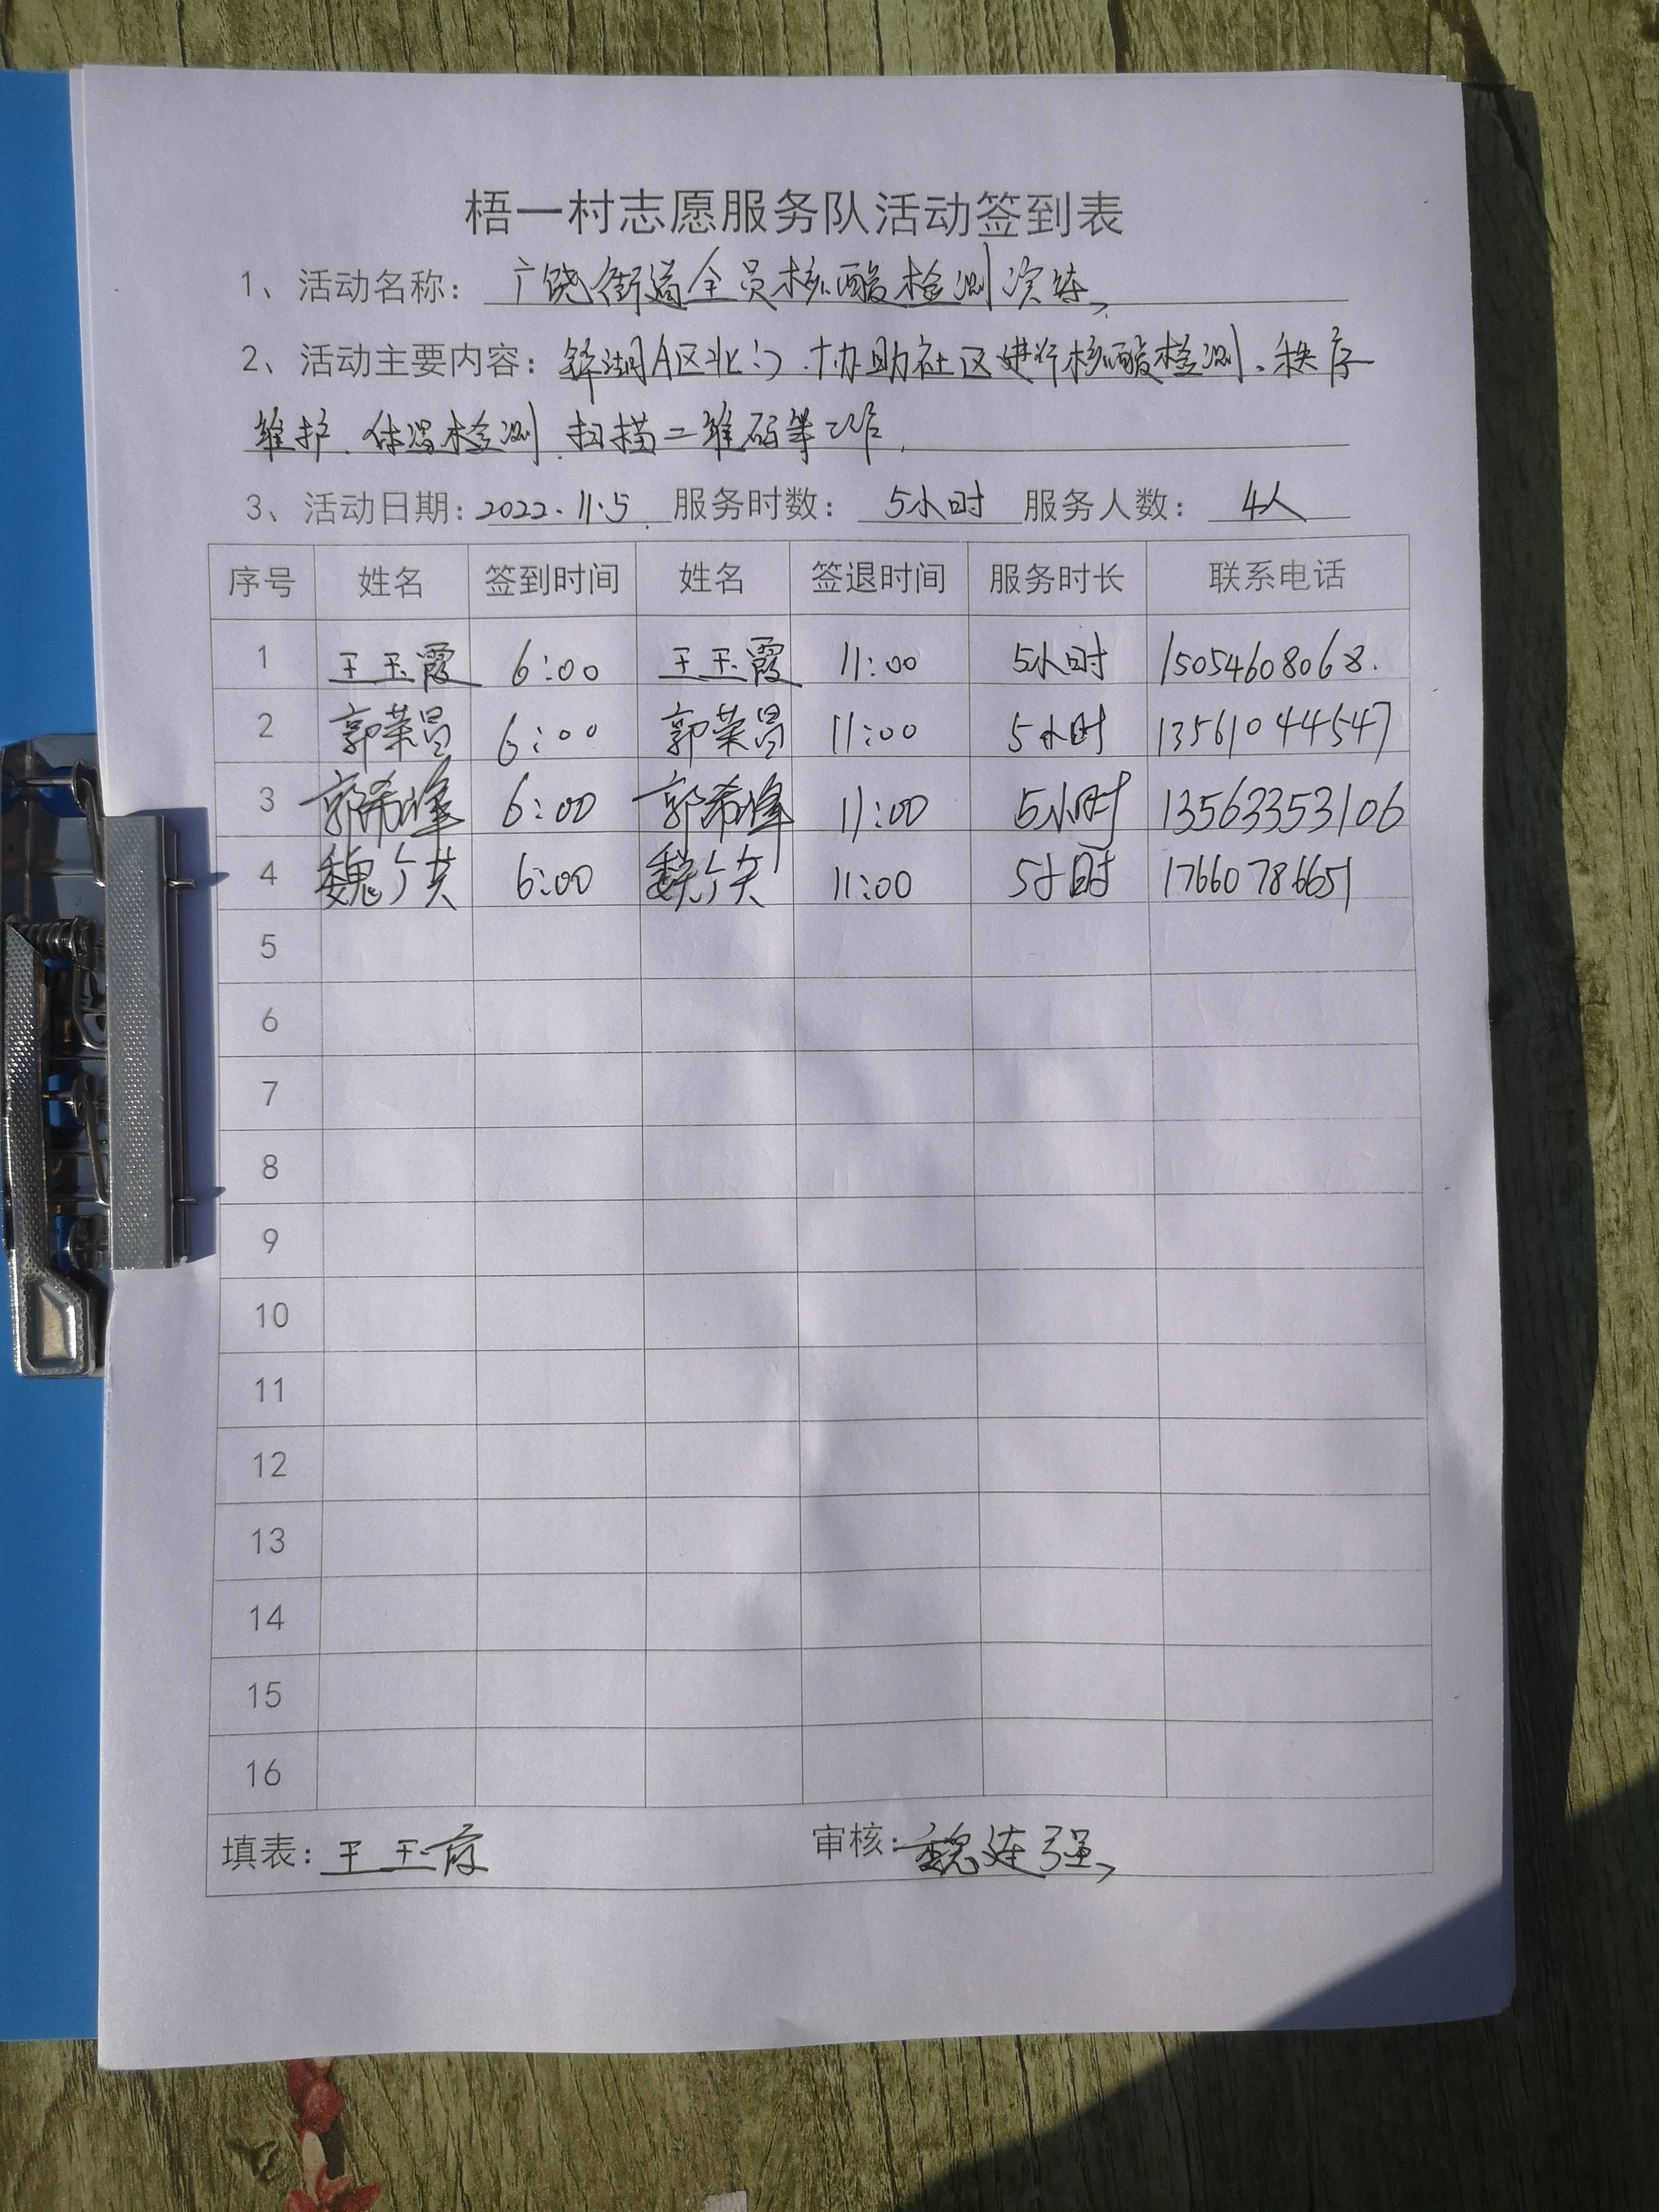 梧一村志愿服务队活动签到表
1、活动名称：广饶街道全员核酸检测演练
2、活动主要内容：锦湖A区北门.协助社区进行核酸检测、秩序
维护、体温检测、扫描二维码等工作.
3、活动日期：2022.11.5 服务时数：5小时 服务人数：4人
序号 姓名 签到时间 姓名 签退时间 服务时长 联系电话
1 王玉霞 6:00 王玉霞 11:00 5小时 15054608068.
2 郭荣昌 6:00 郭荣昌 11:00 5小时 13561044547
3 郭希峰 6:00 郭希峰 11:00 5小时 13563353106
4 魏广英 6:00 魏广英 11:00 5小时 17660786651
5
6
7
8
9
10
11
12
13
14
15
16
填表：王玉霞 审核：魏连强